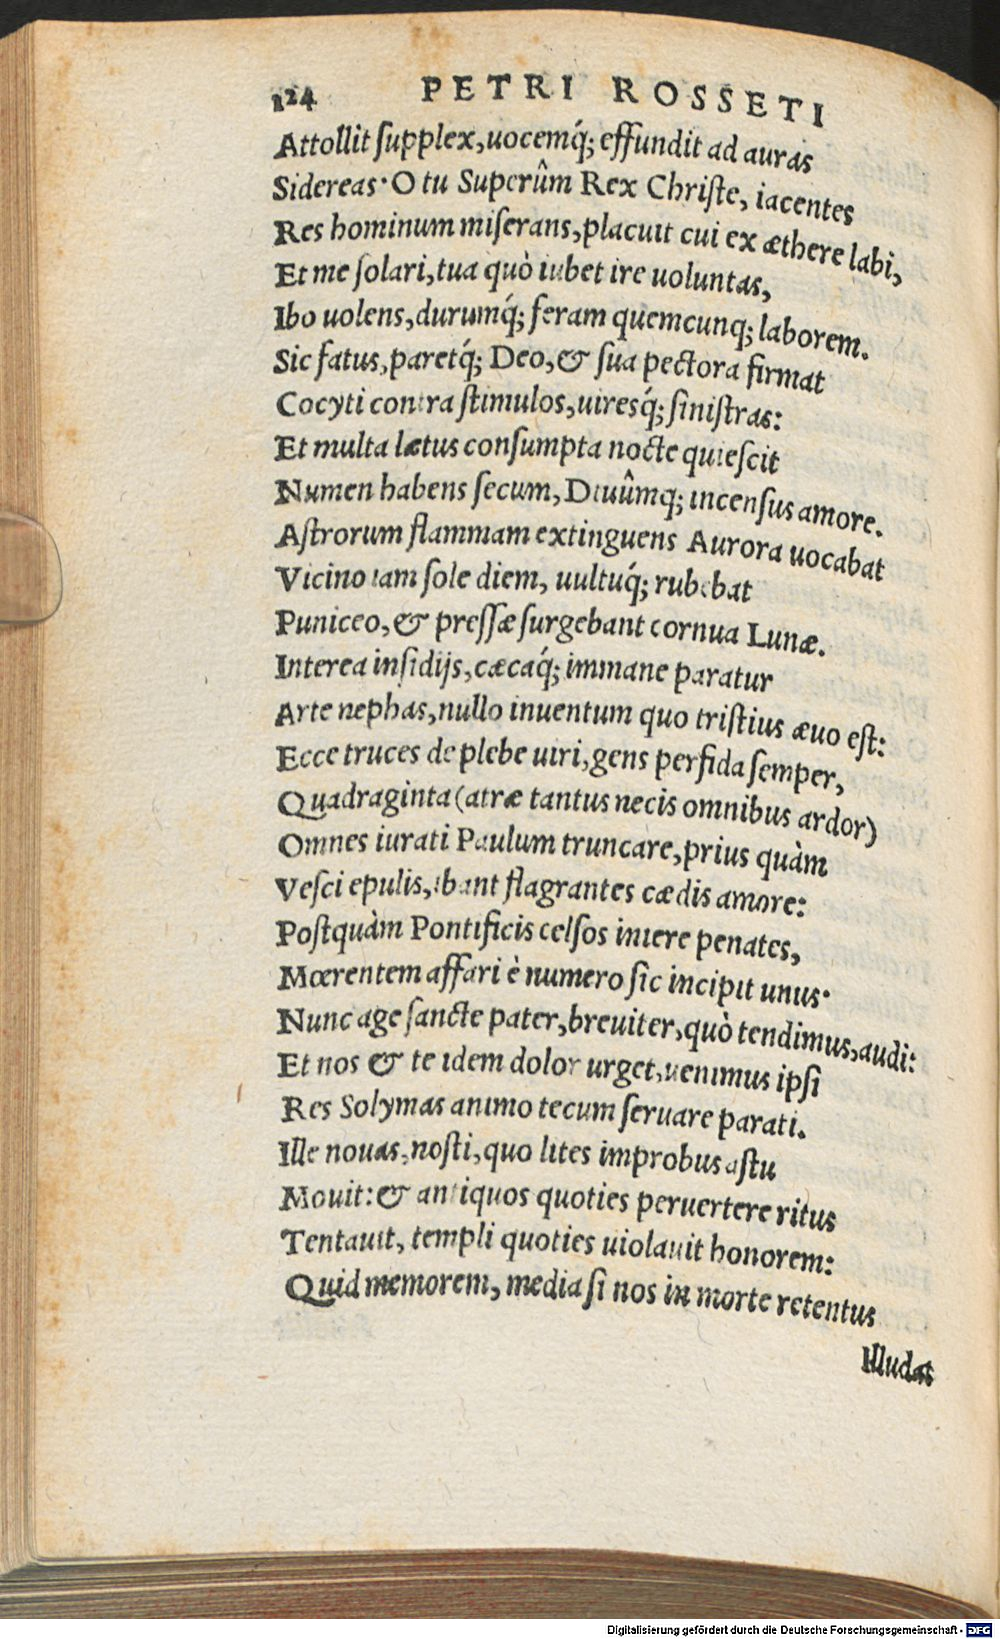 124 PETRI ROSSETI
Attollit supplex, uocemq́; effundit ad auras
Sidereas· O tu Superûm Rex Christe, iacentes
Res hominum miserans, placuit cui ex æthere labi,
Et me solari, tua quò iubet ire uoluntas,
Ibo uolens, durumq́; feram quemcunq; laborem.
Sic fatus, paretq́; Deo, & sua pectora firmat
Cocyti contra stimulos, uiresq́; sinistras:
Et multa lætus consumpta nocte quiescit
Numen habens secum, Diuûmq; incensus amore.
Astrorum flammam extinguens Aurora uocabat
Vicino iam sole diem, uultuq́; rubebat
Puniceo, & pressæ surgebant cornua Lunæ.
Interea insidijs, cæcaq́; immane paratur
Arte nephas, nullo inuentum quo tristius æuo est:
Ecce truces de plebe uiri, gens perfida semper,
Quadraginta (atræ tantus necis omnibus ardor)
Omnes iurati Paulum truncare, prius quàm
Vesci epulis, ibant flagrantes cædis amore:
Postquàm Pontificis celsos iniere penates,
Mœrentem affari è numero sic incipit unus·
Nunc age sancte pater, breuiter, quò tendimus, audi:
Et nos & te idem dolor urget, uenimus ipsi
Res Solymas animo tecum seruare parati.
Ille nouas, nosti, quo lites improbus astu
Mouit: & antiquos quoties peruertere ritus
Tentauit, templi quoties uiolauit honorem:
Quid memorem, media si nos in morte retentus
Illudat
Digitalisierung gefördert durch die Deutsche Forschungsgemeinschaft - DFG